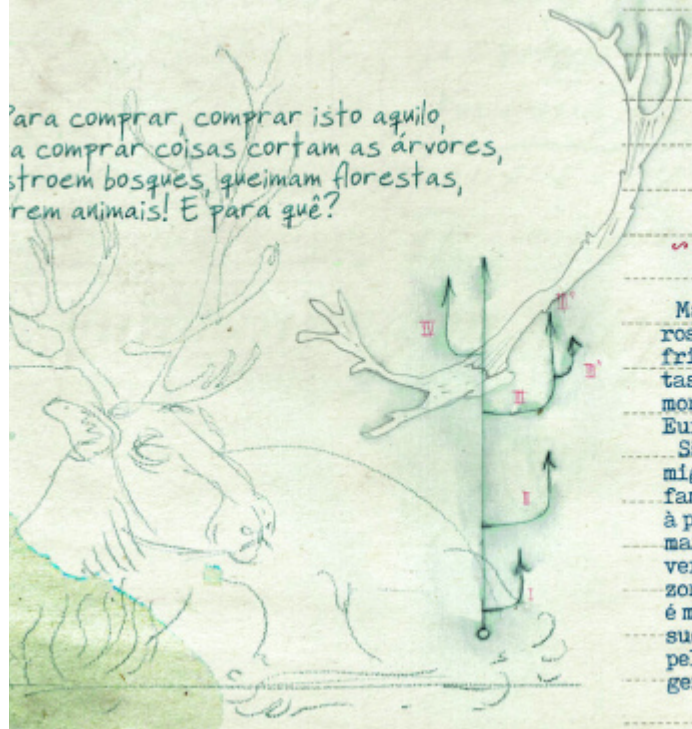 Para comprar, comprar isto aquilo,
a comprar coisas cortam as árvores,
stroem bosques, queimam florestas,
rem animais! E para quê?
IV
III
II
I
Ma
ros
fri
tas
mon
Eu
S
mig
fam
à p
ma
ve
zon
é m
su
pel
ge